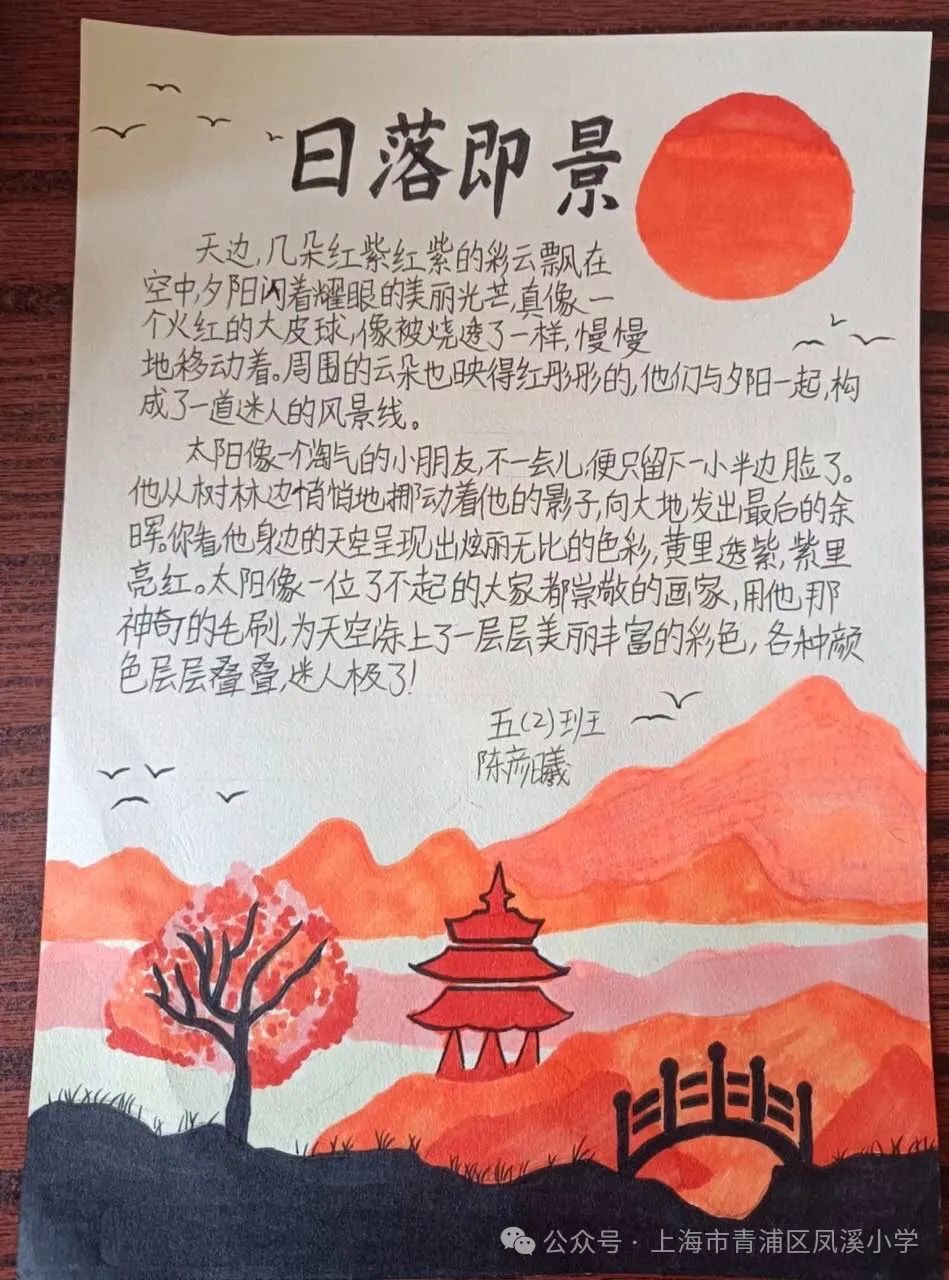 日落即景
天边,几朵红紫红紫的彩云飘在
空中,夕阳闪着耀眼的美丽光芒,真像一
个火红的大皮球,像被烧透了一样,慢慢
地移动着。周围的云朵也映得红彤彤的,他们与夕阳一起,构
成了一道迷人的风景线。
太阳像一个淘气的小朋友,不一会儿,便只留下一小半边脸了。
他从树林边悄悄地挪动着他的影子,向大地发出最后的余
晖。你看,他身边的天空呈现出炫丽无比的色彩,黄里透紫,紫里
亮红。太阳像一位了不起的大家都崇敬的画家,用他那
神奇的毛刷,为天空涂上了一层层美丽丰富的彩色,各种颜
色层层叠叠,迷人极了!
五(2)班
陈彦曦
公众号·上海市青浦区凤溪小学